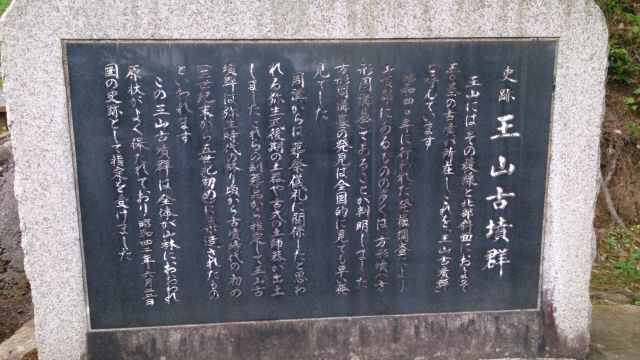 史跡 王山古墳群
王山には、その稜線と北部斜面におよそ
五〇基の古墳が所在し、これを、王山古墳群
と呼んでいます
昭和四〇年に行われた発掘調査により
山頂部にあるものの多くは方形墳・方
形周溝墓であることが判明しました
方形周溝墓の発見は全国的に見ても早い発
見でした
周溝からは葬祭儀礼に関係したと思わ
れる弥生式後期の土器や古式の土師器が出土
しました これらの出土品から推定して王山古
墳群は弥生時代の終り頃から古墳時代の初の
四世紀末から五世紀初めに築造されたもの
といわれます
この王山古墳群は全体が山林におおわれ
原状がよく保たれており 昭和四二年六月二二日
国の史跡として指定を受けました